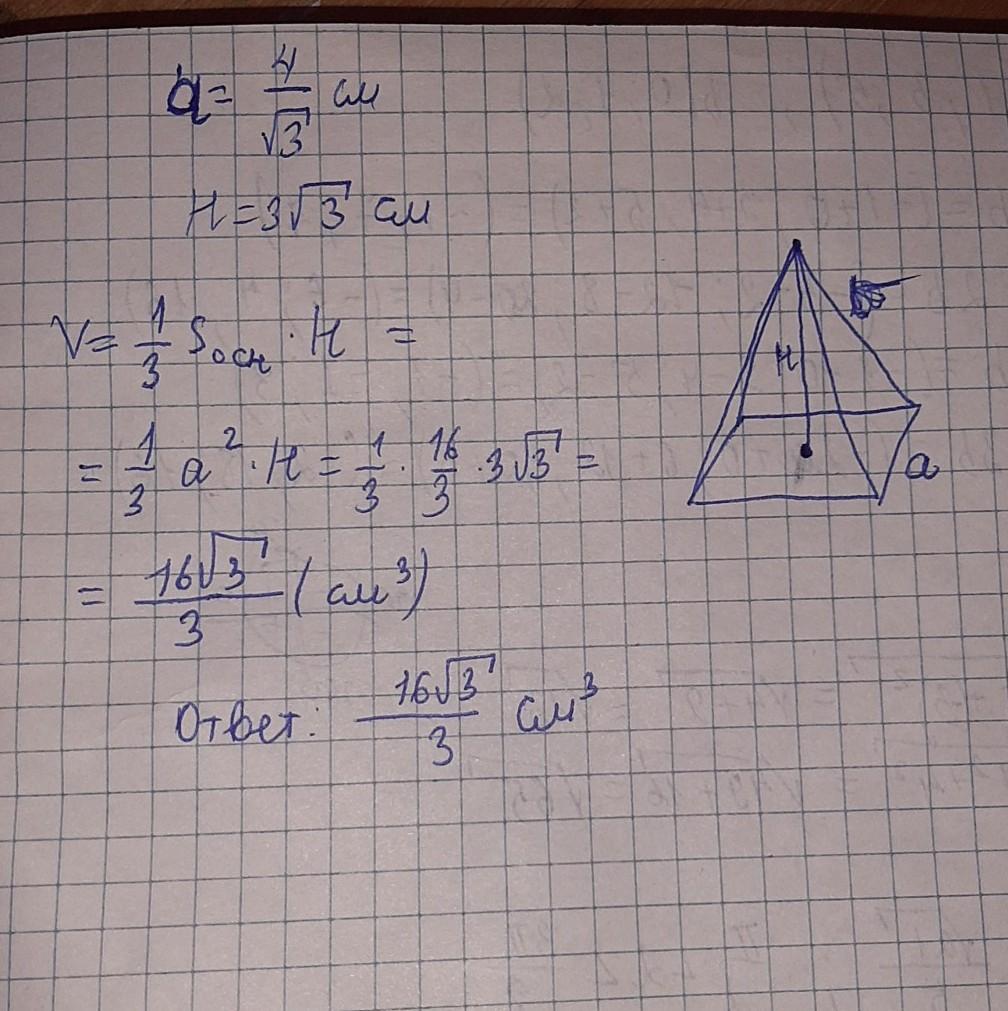 a = 4/√3 см
H = 3√3 см
V = 1/3 Sосн · H =
= 1/3 a² · H = 1/3 · 16/3 · 3√3 =
= 16√3/3 (см³)
Ответ: 16√3/3 см³
H
a